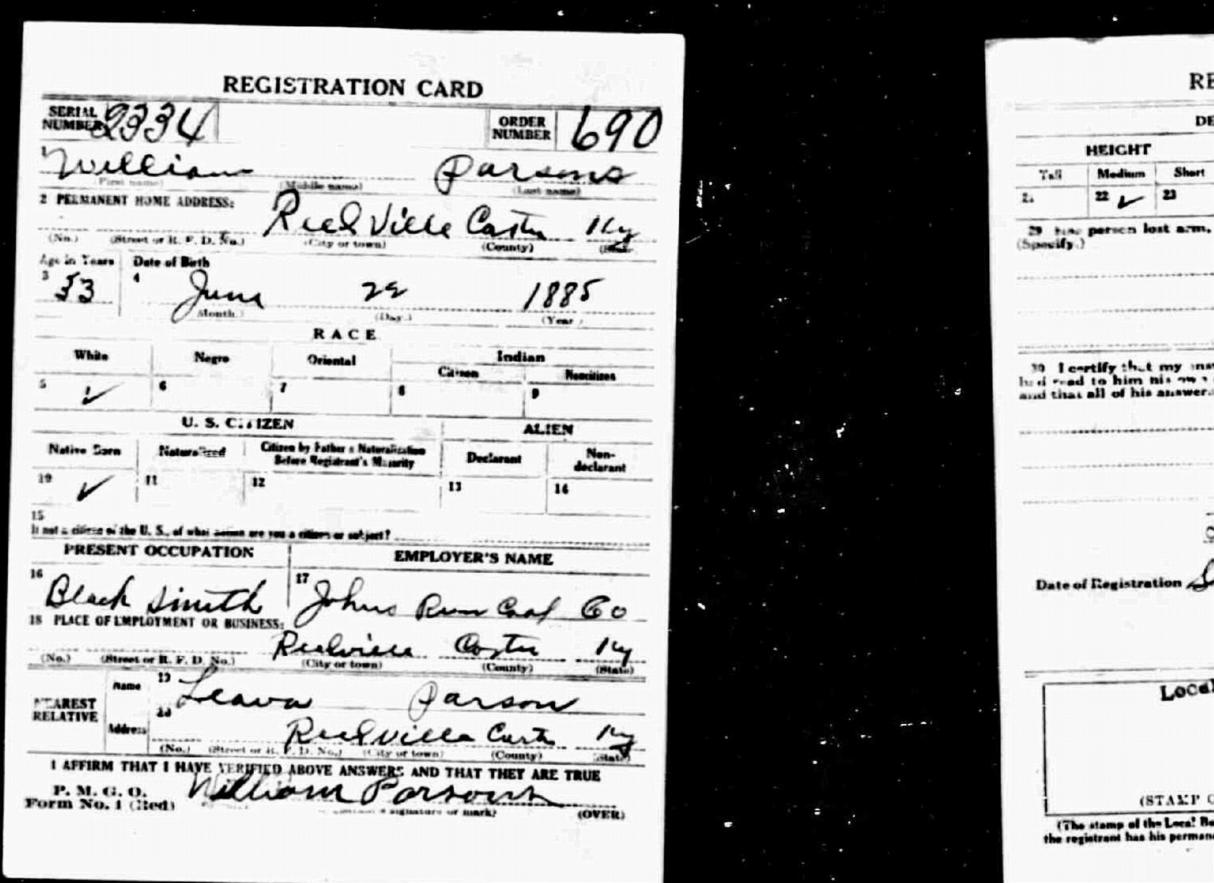 REGISTRATION CARD
SERIAL NUMBER 2334 ORDER NUMBER 690
William Parsons
(First name) (Middle name) (Last name)
2 PERMANENT HOME ADDRESS:
ReelVille Carter Ky
(No.) (Street or R. F. D. No.) (City or town) (County) (State)
Age in Years Date of Birth
3 33 4 June 22 1885
(Month) (Day) (Year)
RACE
White Negro Oriental Indian
Citizen Noncitizen
5 6 7 8 9
U. S. CITIZEN ALIEN
Native Born Naturalized Citizen by Father's Naturalization Before Registrant's Maturity Declarant Non-declarant
10 11 12 13 14
15
If not a citizen of the U. S., of what nation are you a citizen or subject?
PRESENT OCCUPATION EMPLOYER'S NAME
16 Black Smith 17 Johns Run Coal Co
18 PLACE OF EMPLOYMENT OR BUSINESS:
Carter Ky
(No.) (Street or R. F. D. No.) (City or town) (County) (State)
NEAREST RELATIVE
Name 19 Leava Parson
Address 20 ReelVille Carter Ky
(No.) (Street or R. F. D. No.) (City or town) (County) (State)
I AFFIRM THAT I HAVE VERIFIED ABOVE ANSWERS AND THAT THEY ARE TRUE
P. M. G. O.
Form No. 1 (Red) William Parsons
signature or mark) (OVER)
RE
DE
HEIGHT
Tall Medium Short
21 22 23
29 Has person lost arm,
(Specify.)
30 I certify that my ans
had read to him his own
and that all of his answer
Date of Registration
Local
(STAMP O
(The stamp of the Local Bo
the registrant has his perman